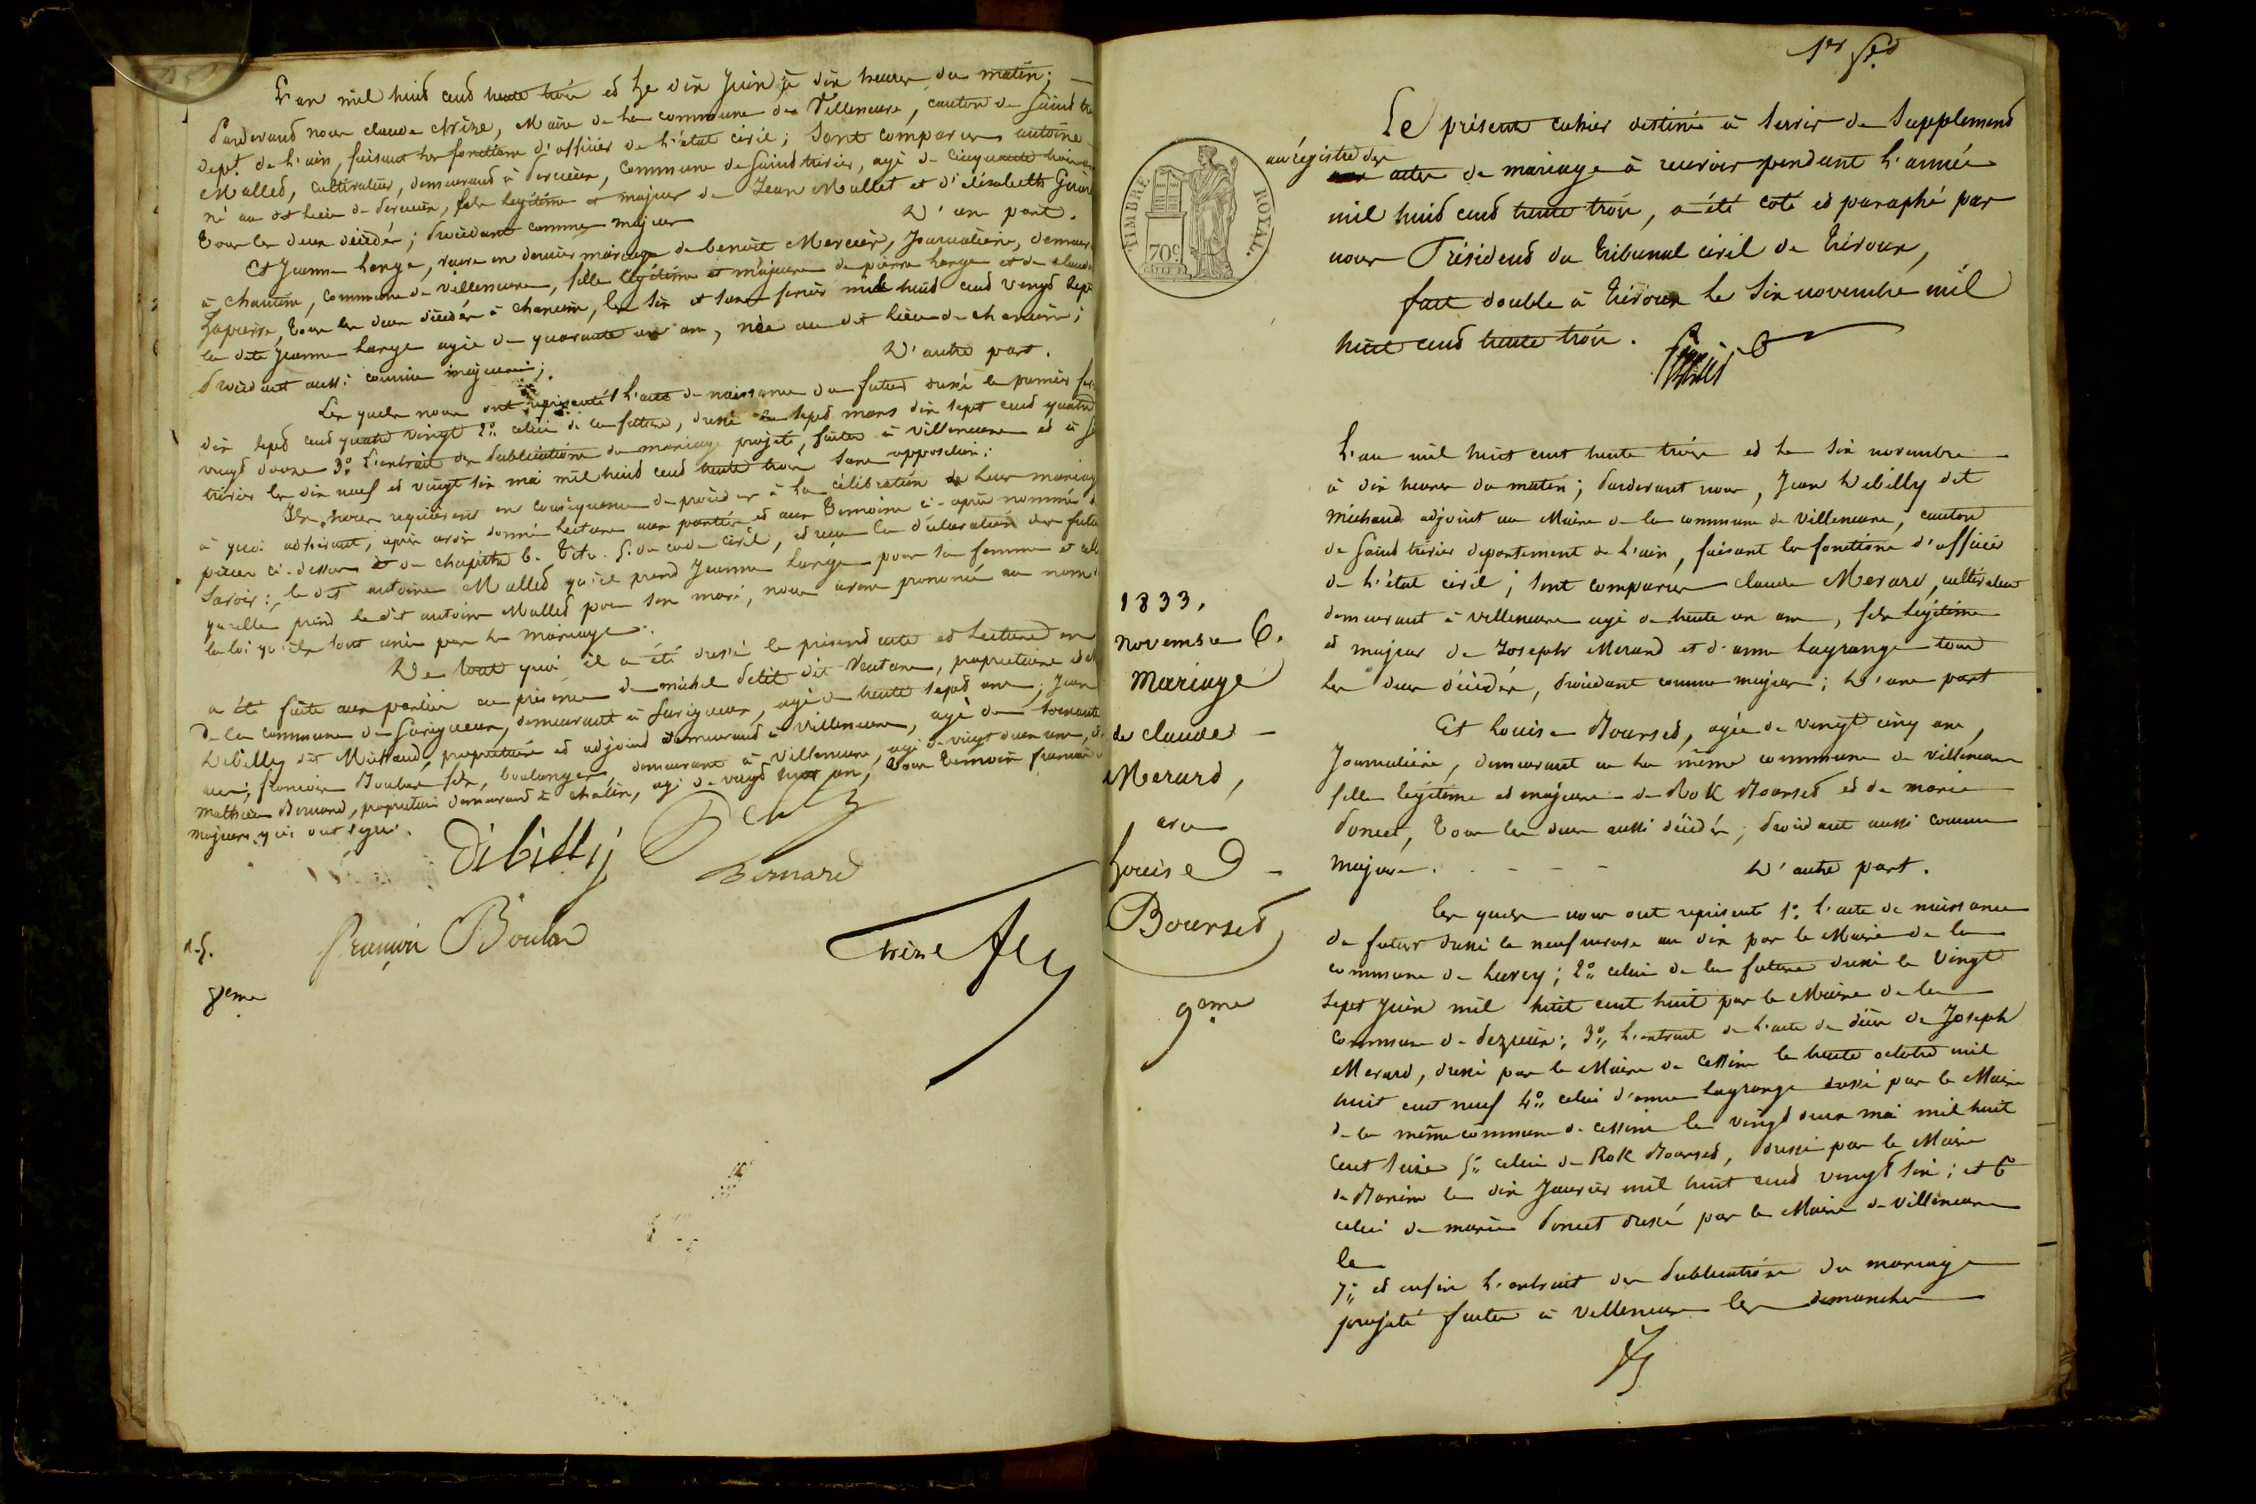 L'an mil huit cent trente trois et le dix Juin à dix heures du matin;
Pardevant nous claude chrize, Maire de la commune de Villeneuve, canton de Saint tri
dept. de l'ain, faisant les fonctions d'officier de l'état civil; Sont comparus antoine
Mallet, cultivateur, demeurant à percieux, commune de Saint trivier, agé de cinquante trois ans
né au dit lieu de percieux, fils légitime et majeur de Jean Mallet et d'élisabeth
tous les deux décédés; procédant comme majeur D'une part.
Et Jeanne large, veuve en dernier mariage de benoit Mercier, Journalière, demeur
à chanein, commune de villeneuve, fille légitime et majeure de pierre large et de claud
Lapierre, tous les deux décédés à chanein, les six et onze février mil huit cent vingt sept
la dite Jeanne large agée de quarante un an, née au dit lieu de chanein;
procédant aussi comme majeure; D'autre part.
Les quels nous ont représenté 1° l'acte de naissance du futur dressé le premier fev
dix sept cent quatre vingt 2° celui de la future, dressé le sept mars dix sept cent quatre
vingt douze 3° l'extrait des publications du mariage projeté, faites à villeneuve et à S
trivier les dix neuf et vingt six mai mil huit cent trente trois sans opposition:
Ils nous requièrent en conséquence de procéder à la célébration de leur mariag
à quoi adhérant, après avoir donné lecture aux parties et aux témoins ci-après nommés d
pièces ci-dessus et du chapitre 6. titre 5. du code civil, et reçu la déclaration des futu
Savoir: le dit antoine Mallet qu'il prend Jeanne large pour sa femme et cell
qu'elle prend le dit antoine Mallet pour son mari, nous avons prononcé au nom d
la loi qu'ils sont unis par le mariage.
De tout quoi il a été dressé le présent acte et lecture en
a été faite aux parties en présence de michel petit dit Ventane, propriétaire et
de la commune de Savigneux, demeurant à Savigneux, agé de trente sept ans; Jean
Débilly dit Michaud, propriétaire et adjoint demeurant à Villeneuve, agé de soixante
ans; françois Boulon fils, boulanger, demeurant à villeneuve, agé de vingt deux ans,
mathieu Bernard, propriétaire demeurant à chalin, agé de vingt huit an; tous témoins français
majeurs, qui ont signé.
Débilly
Bernard
françois Boulon
Chrize
n. f.
8eme
1er f.et
Le présent cahier destiné à servir de Supplement
au registre des
actes de mariage à recevoir pendant l'année
mil huit cent trente trois, a été coté et paraphé par
nous Président du tribunal civil de trévoux,
fait double à trévoux le six novembre mil
huit cent trente trois.
TIMBRE ROYAL.
70c
1833,
novembre 6.
Mariage
de claude
Merard,
avec
Louise
Bourset
9eme
L'an mil huit cent trente trois et le six novembre
à dix heures du matin; Pardevant nous, Jean Débilly dit
michaud adjoint au Maire de la commune de villeneuve, canton
de Saint trivier département de l'ain, faisant les fonctions d'officier
de l'état civil; Sont comparus claude Merard, cultivateur
demeurant à villeneuve agé de trente un ans, fils légitime
et majeur de Joseph Merard et d'anne lagrange tous
les deux décédés, procédant comme majeur; D'une part
Et Louise Bourset, agée de vingt cinq ans,
Journalière, demeurant en la même commune de villeneuve
fille légitime et majeure de Rok Bourset et de marie
poncet, tous les deux aussi décédés; procédant aussi comme
majeure. - - - D'autre part.
les quels nous ont représenté 1° l'acte de naissance
du futur dressé le neuf messidor an dix par le Maire de la
commune de Lurcy; 2° celui de la future dressé le Vingt
sept Juin mil huit cent huit par le Maire de la
commune de pizieux; 3° l'extrait de l'acte de décès de Joseph
Merard, dressé par le Maire de cessin le trente octobre mil
huit cent neuf 4° celui d'anne lagrange dressé par le Maire
de la même commune de cessin le vingt deux mai mil huit
cent seize 5° celui de Rok Bourset, dressé par le Maire
de Banein le dix Janvier mil huit cent vingt six; et 6°
celui de marie poncet dressé par le Maire de villeneuve
le
7° et enfin l'extrait des publications du mariage
projeté faites à villeneuve les dimanches